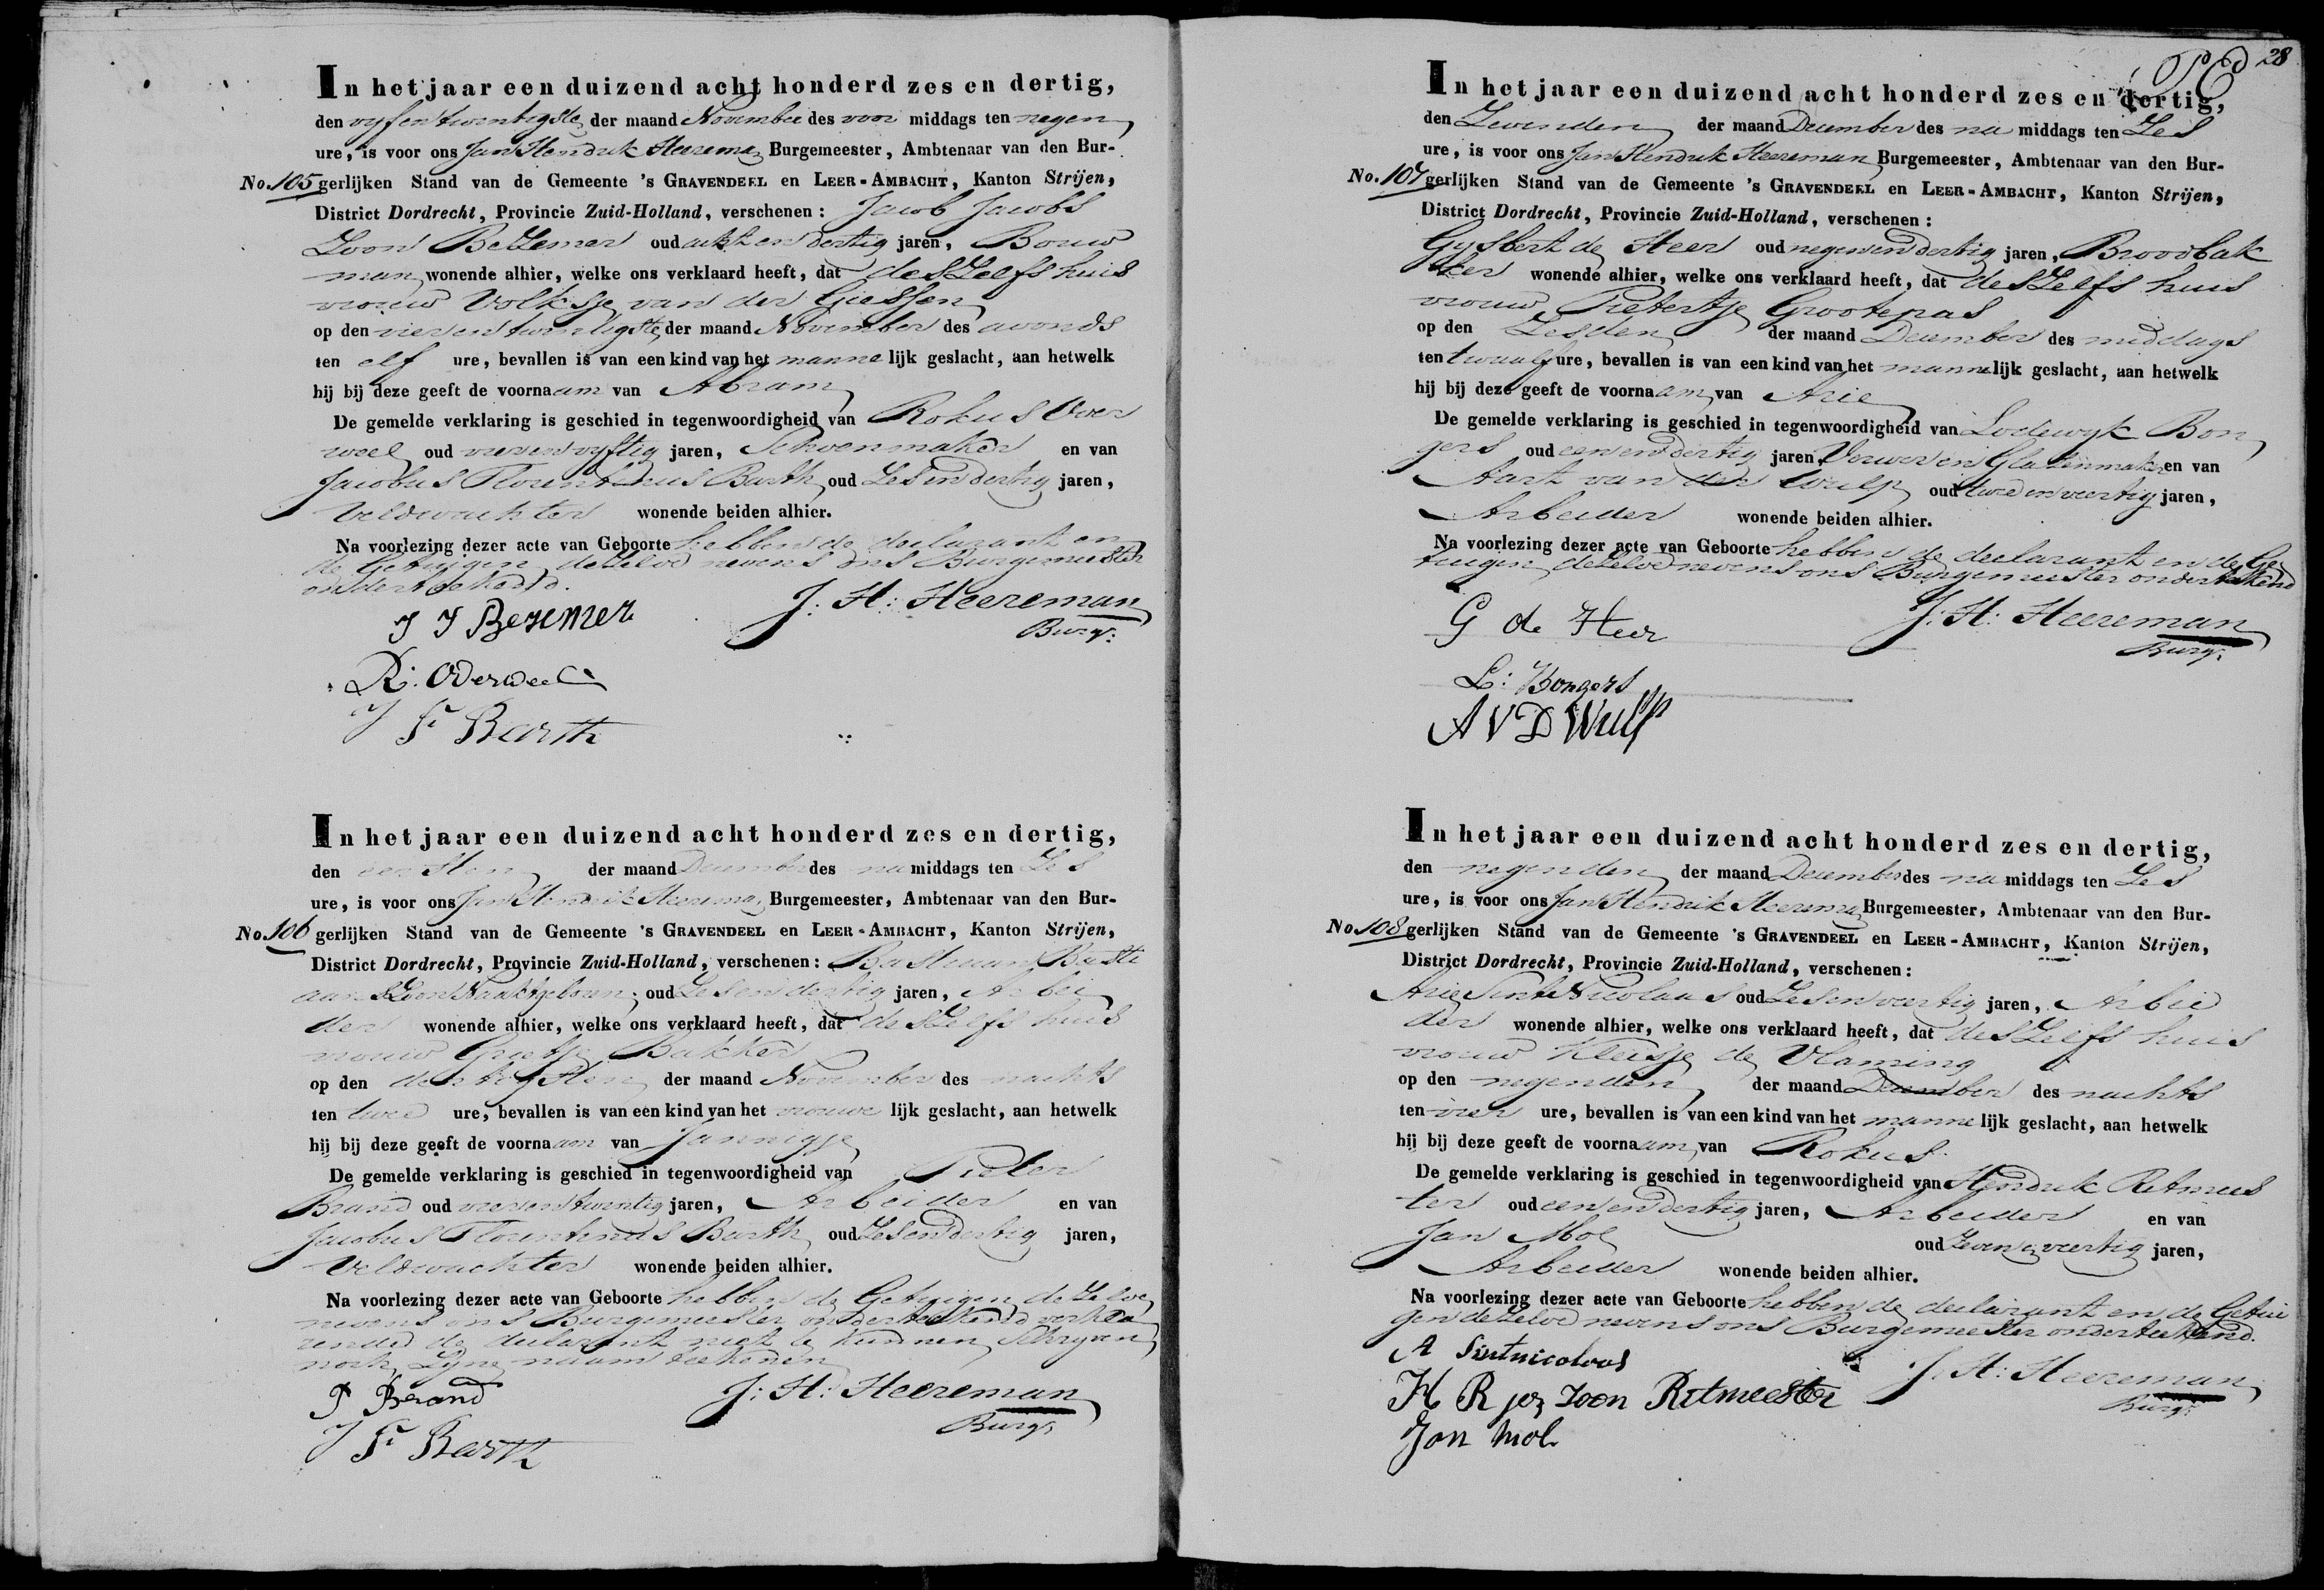 In het jaar een duizend acht honderd zes en dertig,
den vyfentwintigste der maand November des voor middags ten negen
ure, is voor ons Jan Hendrik Heereman Burgemeester, Ambtenaar van den Bur-
No. 105 gerlijken Stand van de Gemeente 's GRAVENDEEL en LEER-AMBACHT, Kanton Strijen,
District Dordrecht, Provincie Zuid-Holland, verschenen: Jacob Jacobs
Zoon Bezemer oud achtendertig jaren, Bouw
man wonende alhier, welke ons verklaard heeft, dat deszelfs huis
vrouw Volksje van der Giessen
op den vierentwintigste der maand November des avonds
ten elf ure, bevallen is van een kind van het mannelijk geslacht, aan hetwelk
hij bij deze geeft de voornaam van Abram
De gemelde verklaring is geschied in tegenwoordigheid van Rokus Over
weel oud vierenvyftig jaren, Schoenmaker en van
Jacobus Florentinus Barth oud zesendertig jaren,
Veldwachter wonende beiden alhier.
Na voorlezing dezer acte van Geboorte hebben de declarant en
de Getuigen dezelve nevens ons Burgemeester
onderteekend.
J J Bezemer J: H: Heereman
Burgr:
R: Overweel
J F Barth
In het jaar een duizend acht honderd zes en dertig,
den eersten der maand December des na middags ten Zes
ure, is voor ons Jan Hendrik Heereman Burgemeester, Ambtenaar van den Bur-
No. 106 gerlijken Stand van de Gemeente 's GRAVENDEEL en LEER-AMBACHT, Kanton Strijen,
District Dordrecht, Provincie Zuid-Holland, verschenen: Bastiaan Basti
aanszoon Naaktgeboren oud zesendertig jaren, Arbei
der wonende alhier, welke ons verklaard heeft, dat deszelfs huis
vrouw Grietje Bakker
op den dertigsten der maand November des nachts
ten twee ure, bevallen is van een kind van het vrouwelijk geslacht, aan hetwelk
hij bij deze geeft de voornaam van Jannigje
De gemelde verklaring is geschied in tegenwoordigheid van Pieter
Brand oud vierentwintig jaren, Arbeider en van
Jacobus Florentinus Barth oud Zesendertig jaren,
Veldwachter wonende beiden alhier.
Na voorlezing dezer acte van Geboorte hebben de Getuigen dezelve
nevens ons Burgemeester onderteekend verkla
rende de declarant niet te kunnen schryven
noch Zyne naam teekenen
P Brand J: H: Heereman
Burgr:
J F Barth
28
In het jaar een duizend acht honderd zes en dertig,
den Zevenden der maand December des na middags ten Zes
ure, is voor ons Jan Hendrik Heereman Burgemeester, Ambtenaar van den Bur-
No. 107 gerlijken Stand van de Gemeente 's GRAVENDEEL en LEER-AMBACHT, Kanton Strijen,
District Dordrecht, Provincie Zuid-Holland, verschenen:
Gysbert de Heer oud negenendertig jaren, Broodbak
ker wonende alhier, welke ons verklaard heeft, dat deszelfs huis
vrouw Pietertje Grootepas
op den Zesden der maand December des middags
ten twaalf ure, bevallen is van een kind van het mannelijk geslacht, aan hetwelk
hij bij deze geeft de voornaam van Arie
De gemelde verklaring is geschied in tegenwoordigheid van Lodewyk Bon
gers oud eenendertig jaren Verwer en Glazenmaker en van
Aart van der Wulp oud tweeenveertig jaren,
Arbeider wonende beiden alhier.
Na voorlezing dezer acte van Geboorte hebben de declarant en de Ge
tuigen dezelve nevens ons Burgemeester onderteekend
G de Heer J: H: Heereman
Burgr:
L: Bongers
A V D Wulp
In het jaar een duizend acht honderd zes en dertig,
den negenden der maand December des na middags ten Zes
ure, is voor ons Jan Hendrik Heereman Burgemeester, Ambtenaar van den Bur-
No. 108 gerlijken Stand van de Gemeente 's GRAVENDEEL en LEER-AMBACHT, Kanton Strijen,
District Dordrecht, Provincie Zuid-Holland, verschenen:
Arie Sint Nicolaas oud Zesenveertig jaren, Arbei
der wonende alhier, welke ons verklaard heeft, dat deszelfs huis
vrouw Kleisje de Vlaming
op den negenden der maand December des nachts
ten vier ure, bevallen is van een kind van het mannelijk geslacht, aan hetwelk
hij bij deze geeft de voornaam van Rokus.
De gemelde verklaring is geschied in tegenwoordigheid van Hendrik Ritmees
ter oud eenendertig jaren, Arbeider en van
Jan Mol oud Zevenenveertig jaren,
Arbeider wonende beiden alhier.
Na voorlezing dezer acte van Geboorte hebben de declarant en de Getui
gen dezelve nevens ons Burgemeester onderteekend.
A Sintnicolaas J. H: Heereman
Burgr:
H R jez zoon Ritmeester
Jan Mol